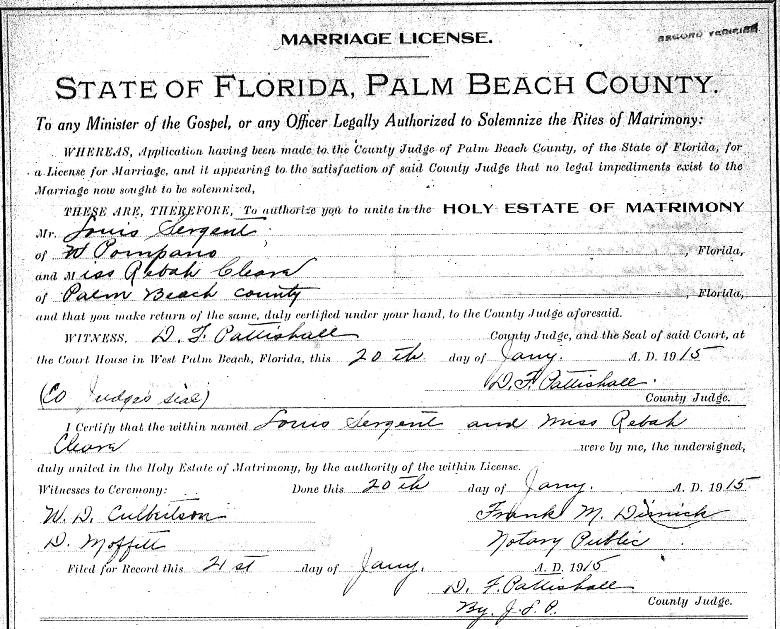 RECORD VERIFIED
MARRIAGE LICENSE.
STATE OF FLORIDA, PALM BEACH COUNTY.
To any Minister of the Gospel, or any Officer Legally Authorized to Solemnize the Rites of Matrimony:
WHEREAS, Application having been made to the County Judge of Palm Beach County, of the State of Florida, for
a License for Marriage, and it appearing to the satisfaction of said County Judge that no legal impediments exist to the
Marriage now sought to be solemnized,
THESE ARE, THEREFORE, To authorize you to unite in the HOLY ESTATE OF MATRIMONY
Mr. Louis Sergent
of W Pompano , Florida,
and Miss Rebah Cleara
of Palm Beach County , Florida,
and that you make return of the same, duly certified under your hand, to the County Judge aforesaid.
WITNESS, D. F. Pattishall County Judge, and the Seal of said Court, at
the Court House in West Palm Beach, Florida, this 20th day of Jany. A. D. 1915
D. F. Pattishall.
(Co Judges seal) County Judge.
I Certify that the within named Louis Sergent and Miss Rebah
Cleara were by me, the undersigned,
duly united in the Holy Estate of Matrimony, by the authority of the within License.
Witnesses to Ceremony: Done this 20th day of Jany. A. D. 1915
W. D. Culbertson Frank M. Dismick
D. Moffitt Notary Public
Filed for Record this 21st day of Jany. A. D. 1915
D. F. Pattishall
By. J. S. P. County Judge.